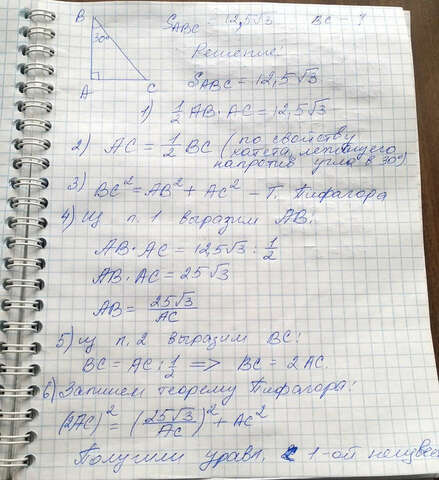 B S_ABC = 12,5√3 BC - ?
30° Решение:
A C S_ABC = 12,5√3
1) 1/2 AB · AC = 12,5√3
2) AC = 1/2 BC (по свойству
катета, лежащего
напротив угла в 30°)
3) BC² = AB² + AC² - т. Пифагора
4) Из п. 1 выразим AB:
AB · AC = 12,5√3 : 1/2
AB · AC = 25√3
AB = 25√3/AC
5) из п. 2 выразим BC:
BC = AC : 1/2 => BC = 2AC.
6) Запишем теорему Пифагора:
(2AC)² = (25√3/AC)² + AC²
Получили уравн. с 1-ой неизвес